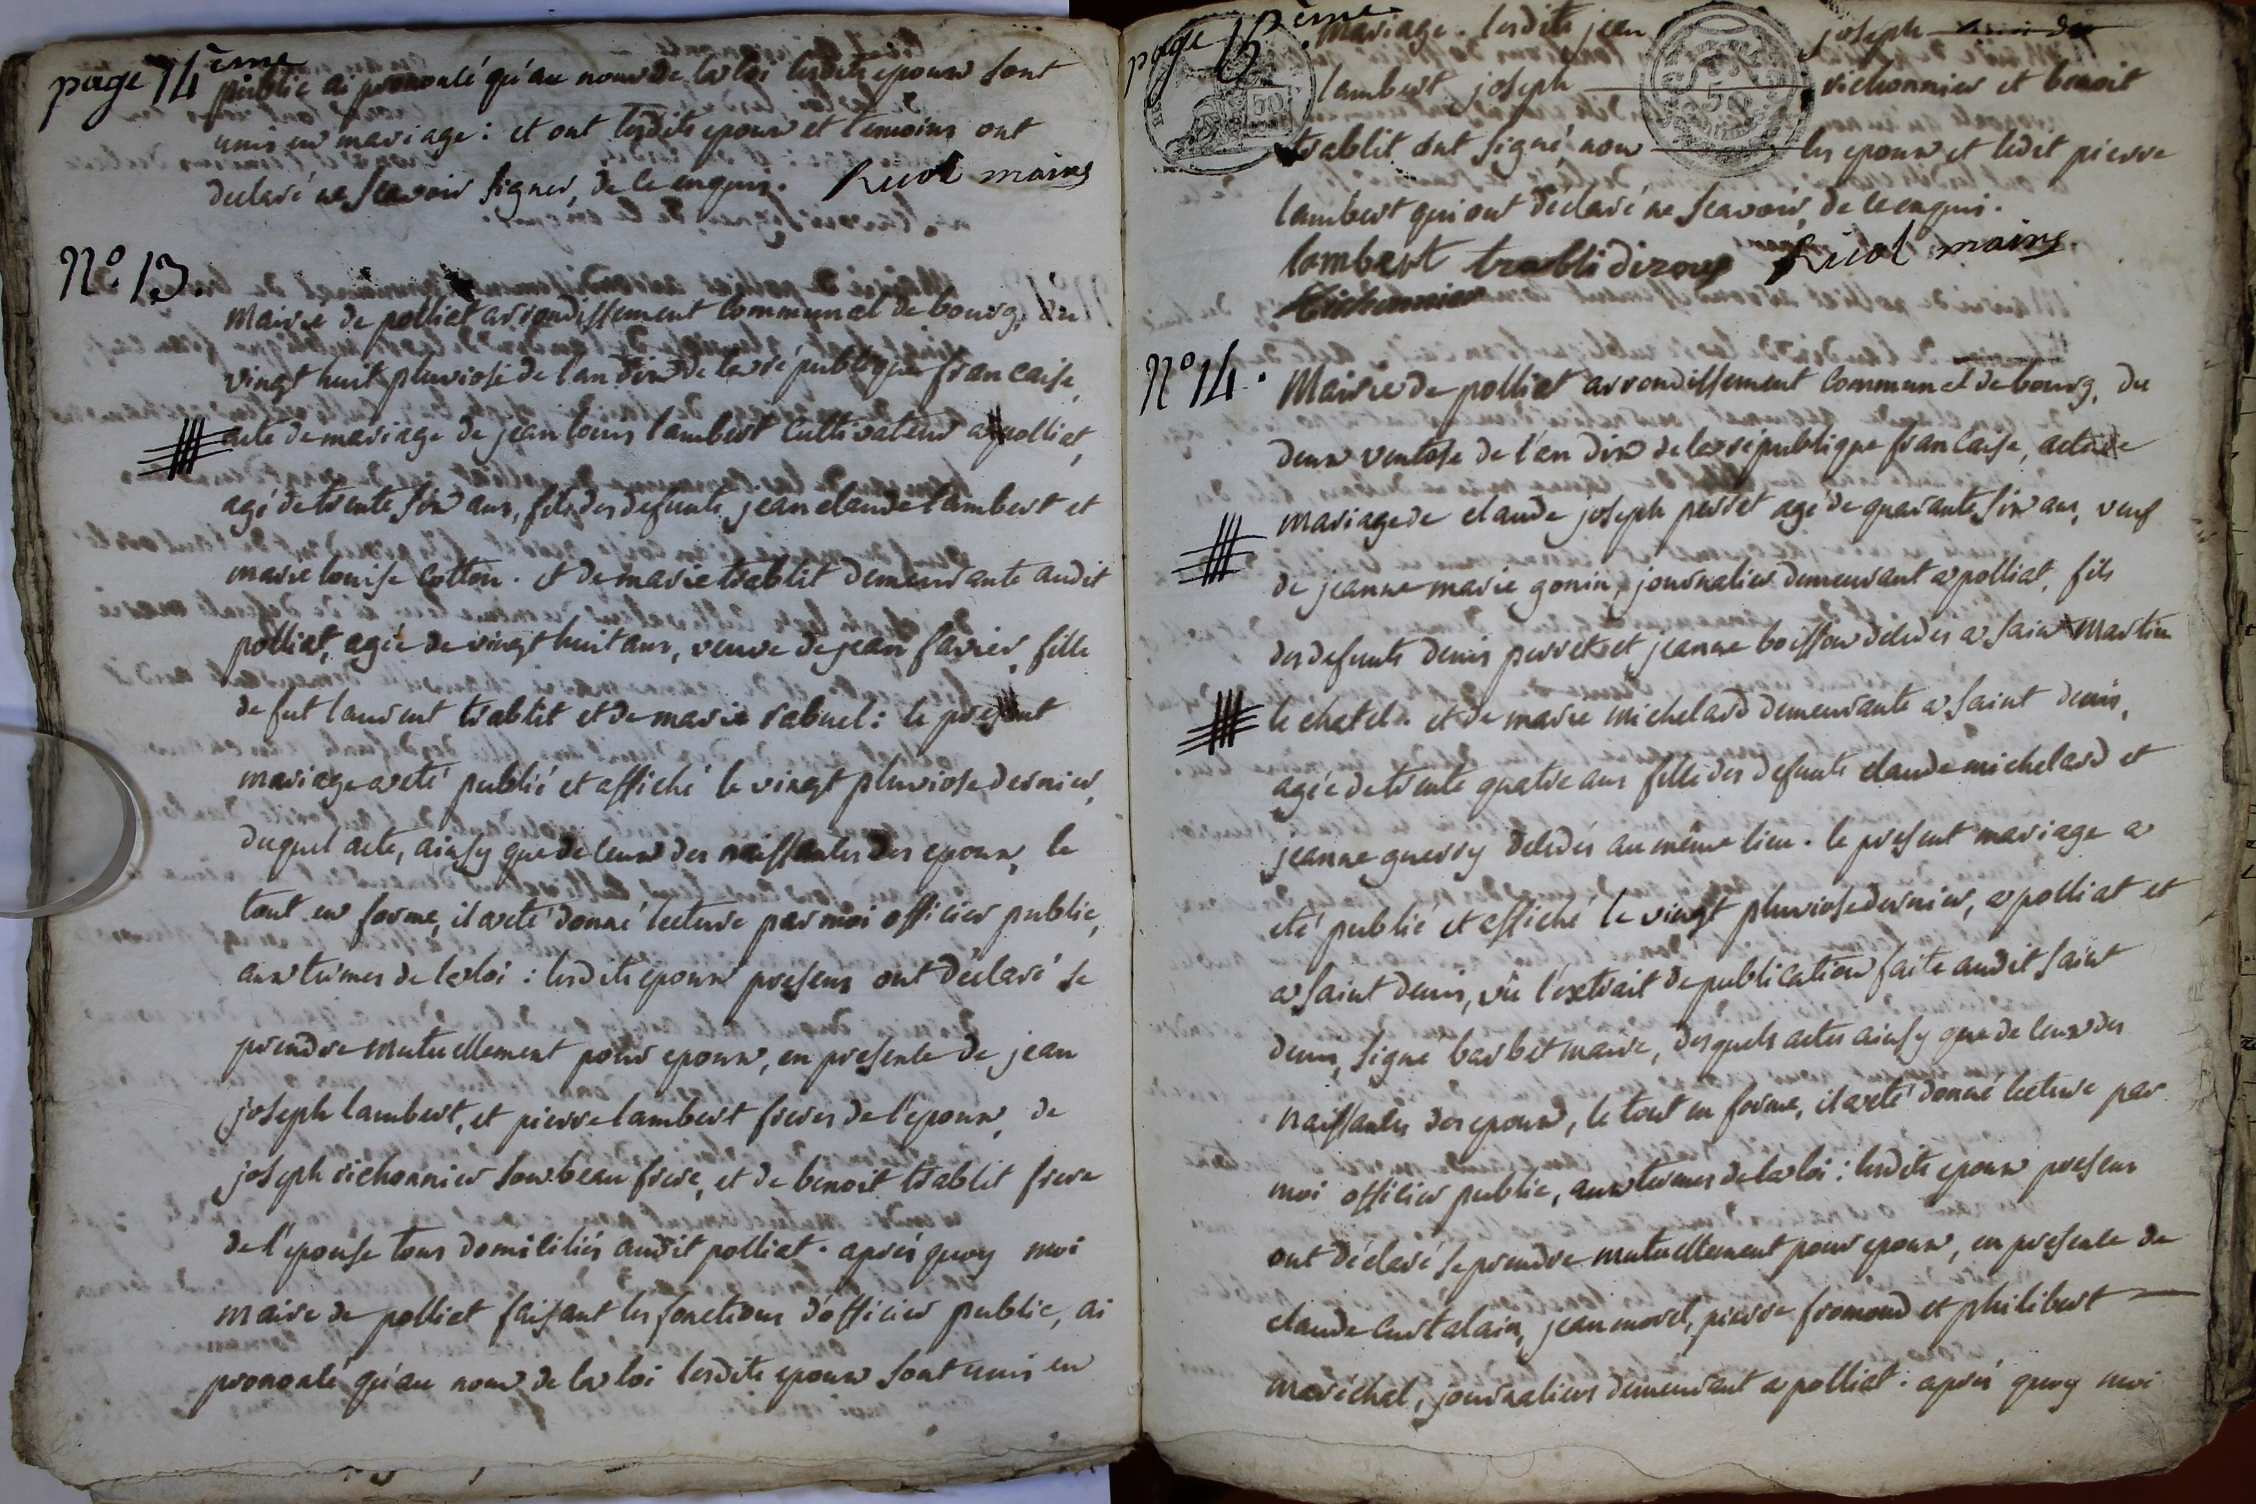 page 14ème
public ai prononcé qu'au nom de la loi lesdits epoux sont
unis en mariage : et ont lesdits epoux et temoins ont
declaré ne scavoir signer, de ce enquis. Ruol maire
N° 13.
Mairie de polliat arrondissement communal de bourg, du
vingt huit pluviose de l'an dix de la république francaise,
acte de mariage de jean louis lambert cultivateur a polliat,
agé de trente six ans, fils des defunts jean claude lambert et
marie louise cotton. et de marie trablit demeurante audit
polliat, agée de vingt huit ans, veuve de jean favier, fille
de fut laurent trablit et de marie rabuel : le present
mariage a eté publié et affiché le vingt pluviose dernier,
duquel acte, ainsy que de ceux des naissances des epoux, le
tout en forme, il a eté donné lecture par moi officier public,
aux termes de la loi : lesdits epoux presens ont déclaré se
prendre mutuellement pour epoux, en presence de jean
joseph lambert, et pierre lambert freres de l'epoux, de
joseph richonnier son beau frere, et de benoit trablit frere
de l'epouse tous domiciliés audit polliat. aprés quoy moi
maire de polliat faisant les fonctions d'officier public, ai
prononcé qu'au nom de la loi lesdits epoux sont unis en
page 15ème
mariage. lesdits jean joseph
lambert joseph richonnier et benoit
trablit ont signé non les epoux et ledit pierre
lambert qui ont déclaré ne scavoir, de ce enquis.
lambert trabli Ruol maire
Richonnier
N° 14.
Mairie de polliat arrondissement communal de bourg, du
deux ventose de l'an dix de la république francaise, acte de
mariage de claude joseph perret agé de quarante six ans, veuf
de jeanne marie gonin, journalier demeurant a polliat, fils
des defunts denis perret et jeanne boisson décedés a saint Martin
le chatel. et de marie michelard demeurante a saint denis,
agée de trente quatre ans fille des defunts claude michelard et
jeanne guerry décedés au même lieu. le present mariage a
eté publié et affiché le vingt pluviose dernier, a polliat et
a saint denis, vu l'extrait de publication faite audit saint
denis, signé barbet maire, desquels actes ainsy que de ceux des
naissances des epoux, le tout en forme, il a eté donné lecture par
moi officier public, aux termes de la loi : lesdits epoux presens
ont déclaré se prendre mutuellement pour epoux, en presence de
claude curtalain, jean morel, pierre fromond et philibert
maréchal, journaliers demeurant a polliat. aprés quoy moi